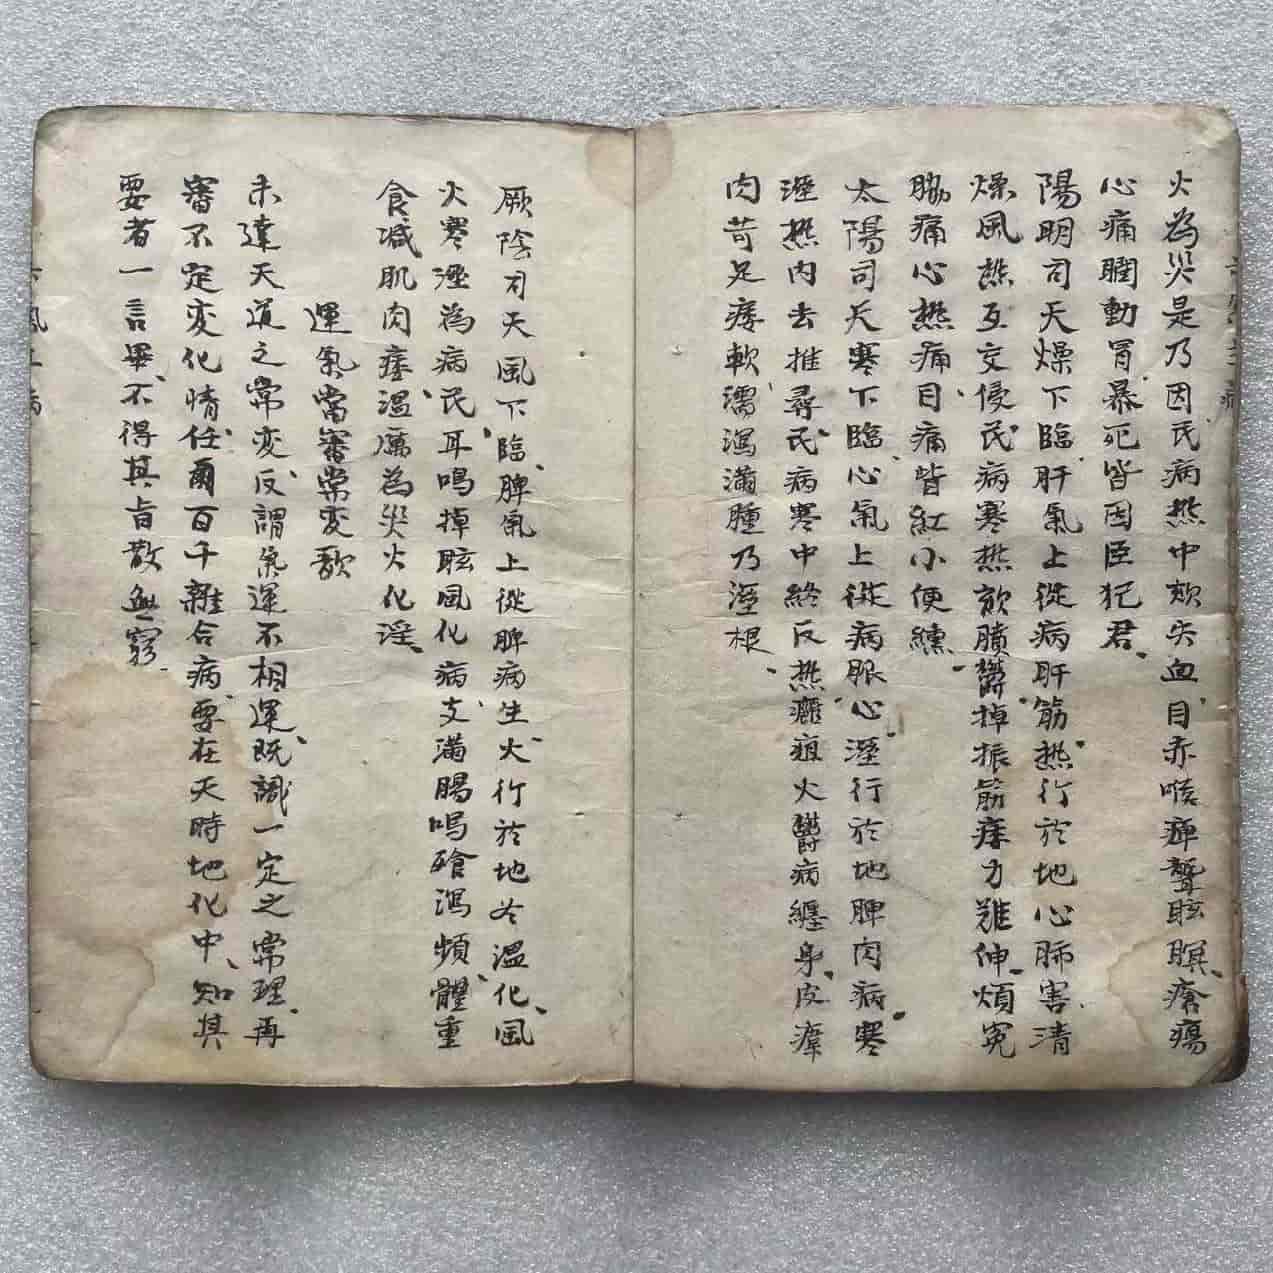 火為災是乃因民病熱中欬失血目赤喉痺聾眩瞑瘡瘍
心痛瞤動冒暴死皆因臣犯君
陽明司天燥下臨肝氣上從病肝筋熱行於地心肺害清
燥風熱互交侵民病寒熱欬膹鬱掉振筋痿力難伸煩冤
脇痛心熱痛目痛眥紅小便纁
太陽司天寒下臨心氣上從病眼心溼行於地脾肉病寒
溼熱內去推尋民病寒中終反熱癰疽火鬱病纏身皮𤸷
肉苛足痿軟濡瀉滿腫乃溼根
厥陰司天風下臨脾氣上從脾病生火行於地冬溫化風
火寒溼為病民耳鳴掉眩風化病支滿腸鳴飱瀉頻體重
食減肌肉痿溫厲為災火化淫
運氣當審常変歌
未達天道之常変反謂氣運不相運既識一定之常理再
審不定変化情任爾百千雜合病要在天時地化中知其
要者一言畢不得其旨散無窮